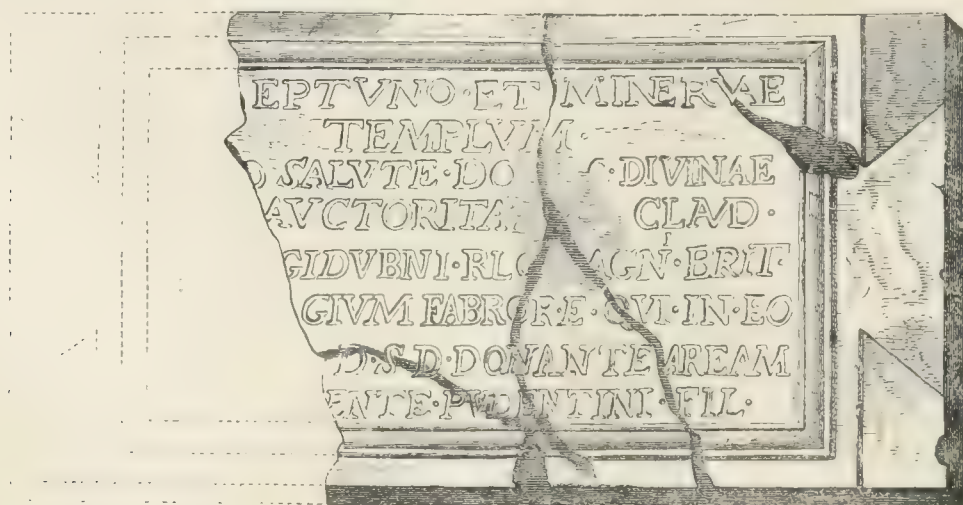 EPTVNO·ET MINERVAE
TEMPLVM
O SALVTE·DO ·DIVINAE
AVCTORITA CLAVD·
GIDVBNI· AGN·BRIT·
GIVM FABROR·E·QVI·IN·EO
D·S·D·DONANTE AREAM
ENTE·PVDENTINI·FIL·